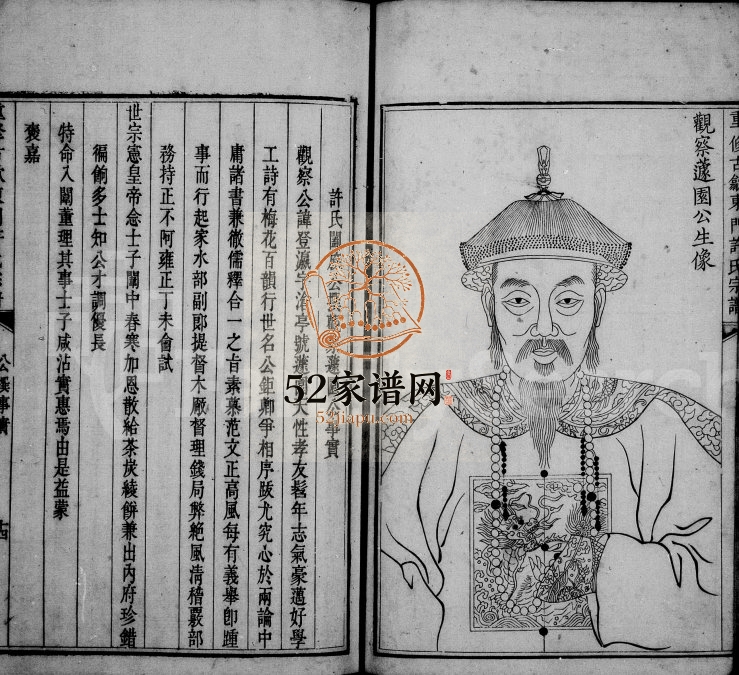 重修古歙東門許氏宗譜
觀察蘧園公生像
許氏闔
事實
觀察公諱登瀛字
亭號蘧
性孝友髫年志氣豪邁好學
工詩有梅花百韻行世名公鉅卿爭相序跋尤究心於兩論中
庸諸書兼徹儒釋合一之旨素慕范文正高風每有義舉卽踵
事而行起家水部副郎提督木厰督理錢局弊絶風清稽覈部
務持正不阿雍正丁未會試
世宗憲皇帝念士子闈中春寒加恩散給茶炭綾餅兼出內府珍錯
徧餉多士知公才調優長
特命入闈董理其事士子咸沾實惠焉由是益蒙
褒嘉
52家谱网
52jiapu.com